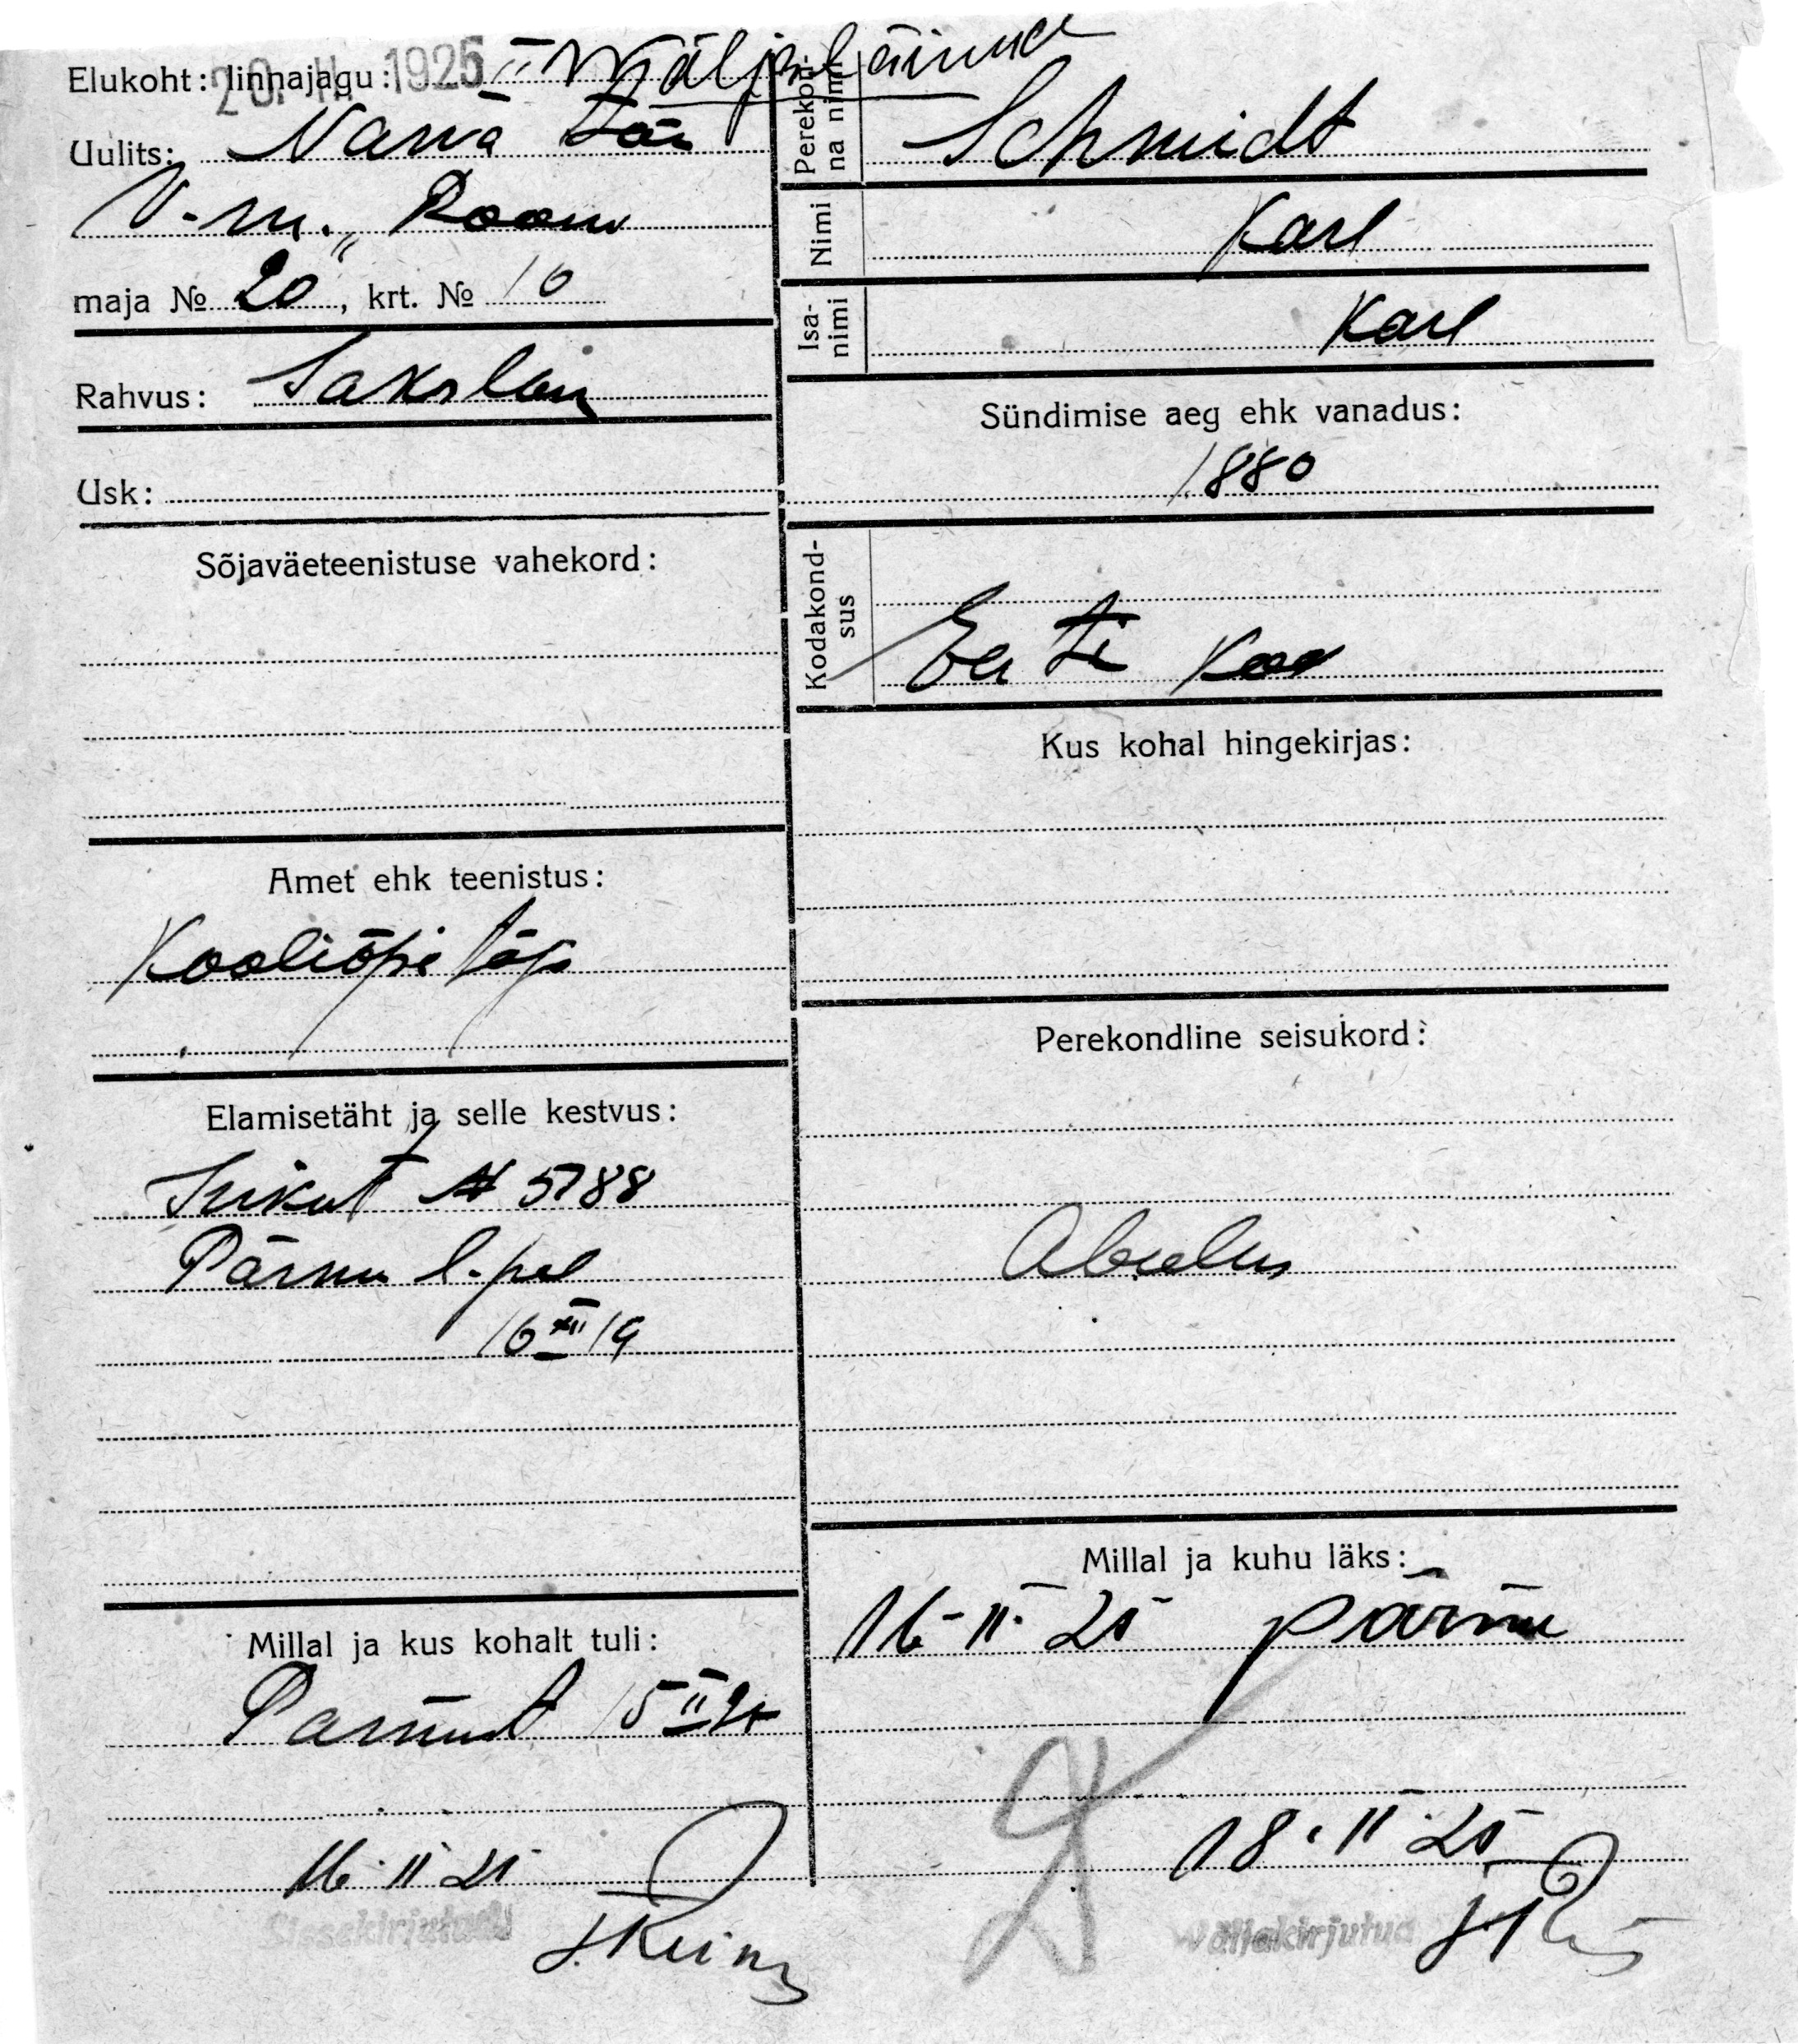 20. II. 1925 Wäljaläinud
Elukoht: linnajagu: II
Uulits: Narva tän
V.-m. „Room"
maja № 20, krt. № 10
Rahvus: Sakslane
Usk:
Sõjaväeteenistuse vahekord:
Amet ehk teenistus:
Kooliõpetaja
Elamisetäht ja selle kestvus:
Isikut № 5788
Pärnu l. pol
16 XII 19
Millal ja kus kohalt tuli:
Pärnust 15 II 25
16. II 25
Sissekirjutud
Perekon-
na nimi
Schmidt
Nimi
Karl
Isa-
nimi
Karl
Sündimise aeg ehk vanadus:
1880
Kodakond-
sus
Eesti Kod
Kus kohal hingekirjas:
Perekondline seisukord:
Abielus
Millal ja kuhu läks:
16-II. 25 Pärnu
18. II 25
Wäljakirjutud